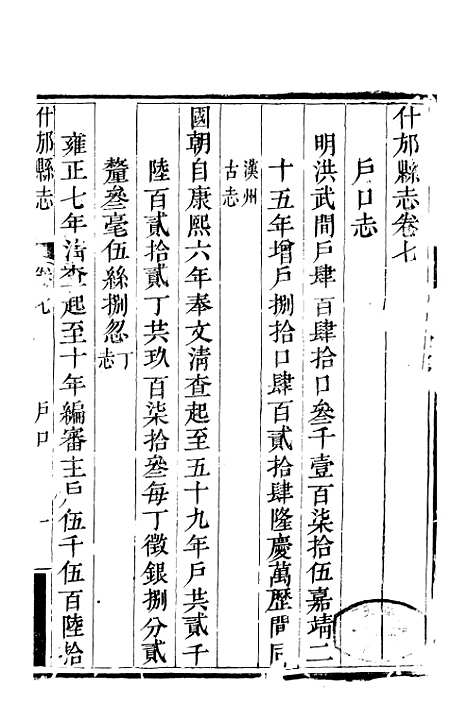 什邡縣志卷七
戶口志
明洪武間戶肆百肆拾口叄千壹百柒拾伍嘉靖二
十五年增戶捌拾口肆百貳拾肆隆慶萬歷間同
漢州
古志
國朝自康熙六年奉文清查起至五十九年戶共貳千
陸百貳拾貳丁共玖百柒拾叄每丁徵銀捌分貳
釐叄毫伍絲捌忽丁
志
雍正七年清查起至十年編審主戶伍千伍百陸拾
什邡縣志
卷七
戶口
一